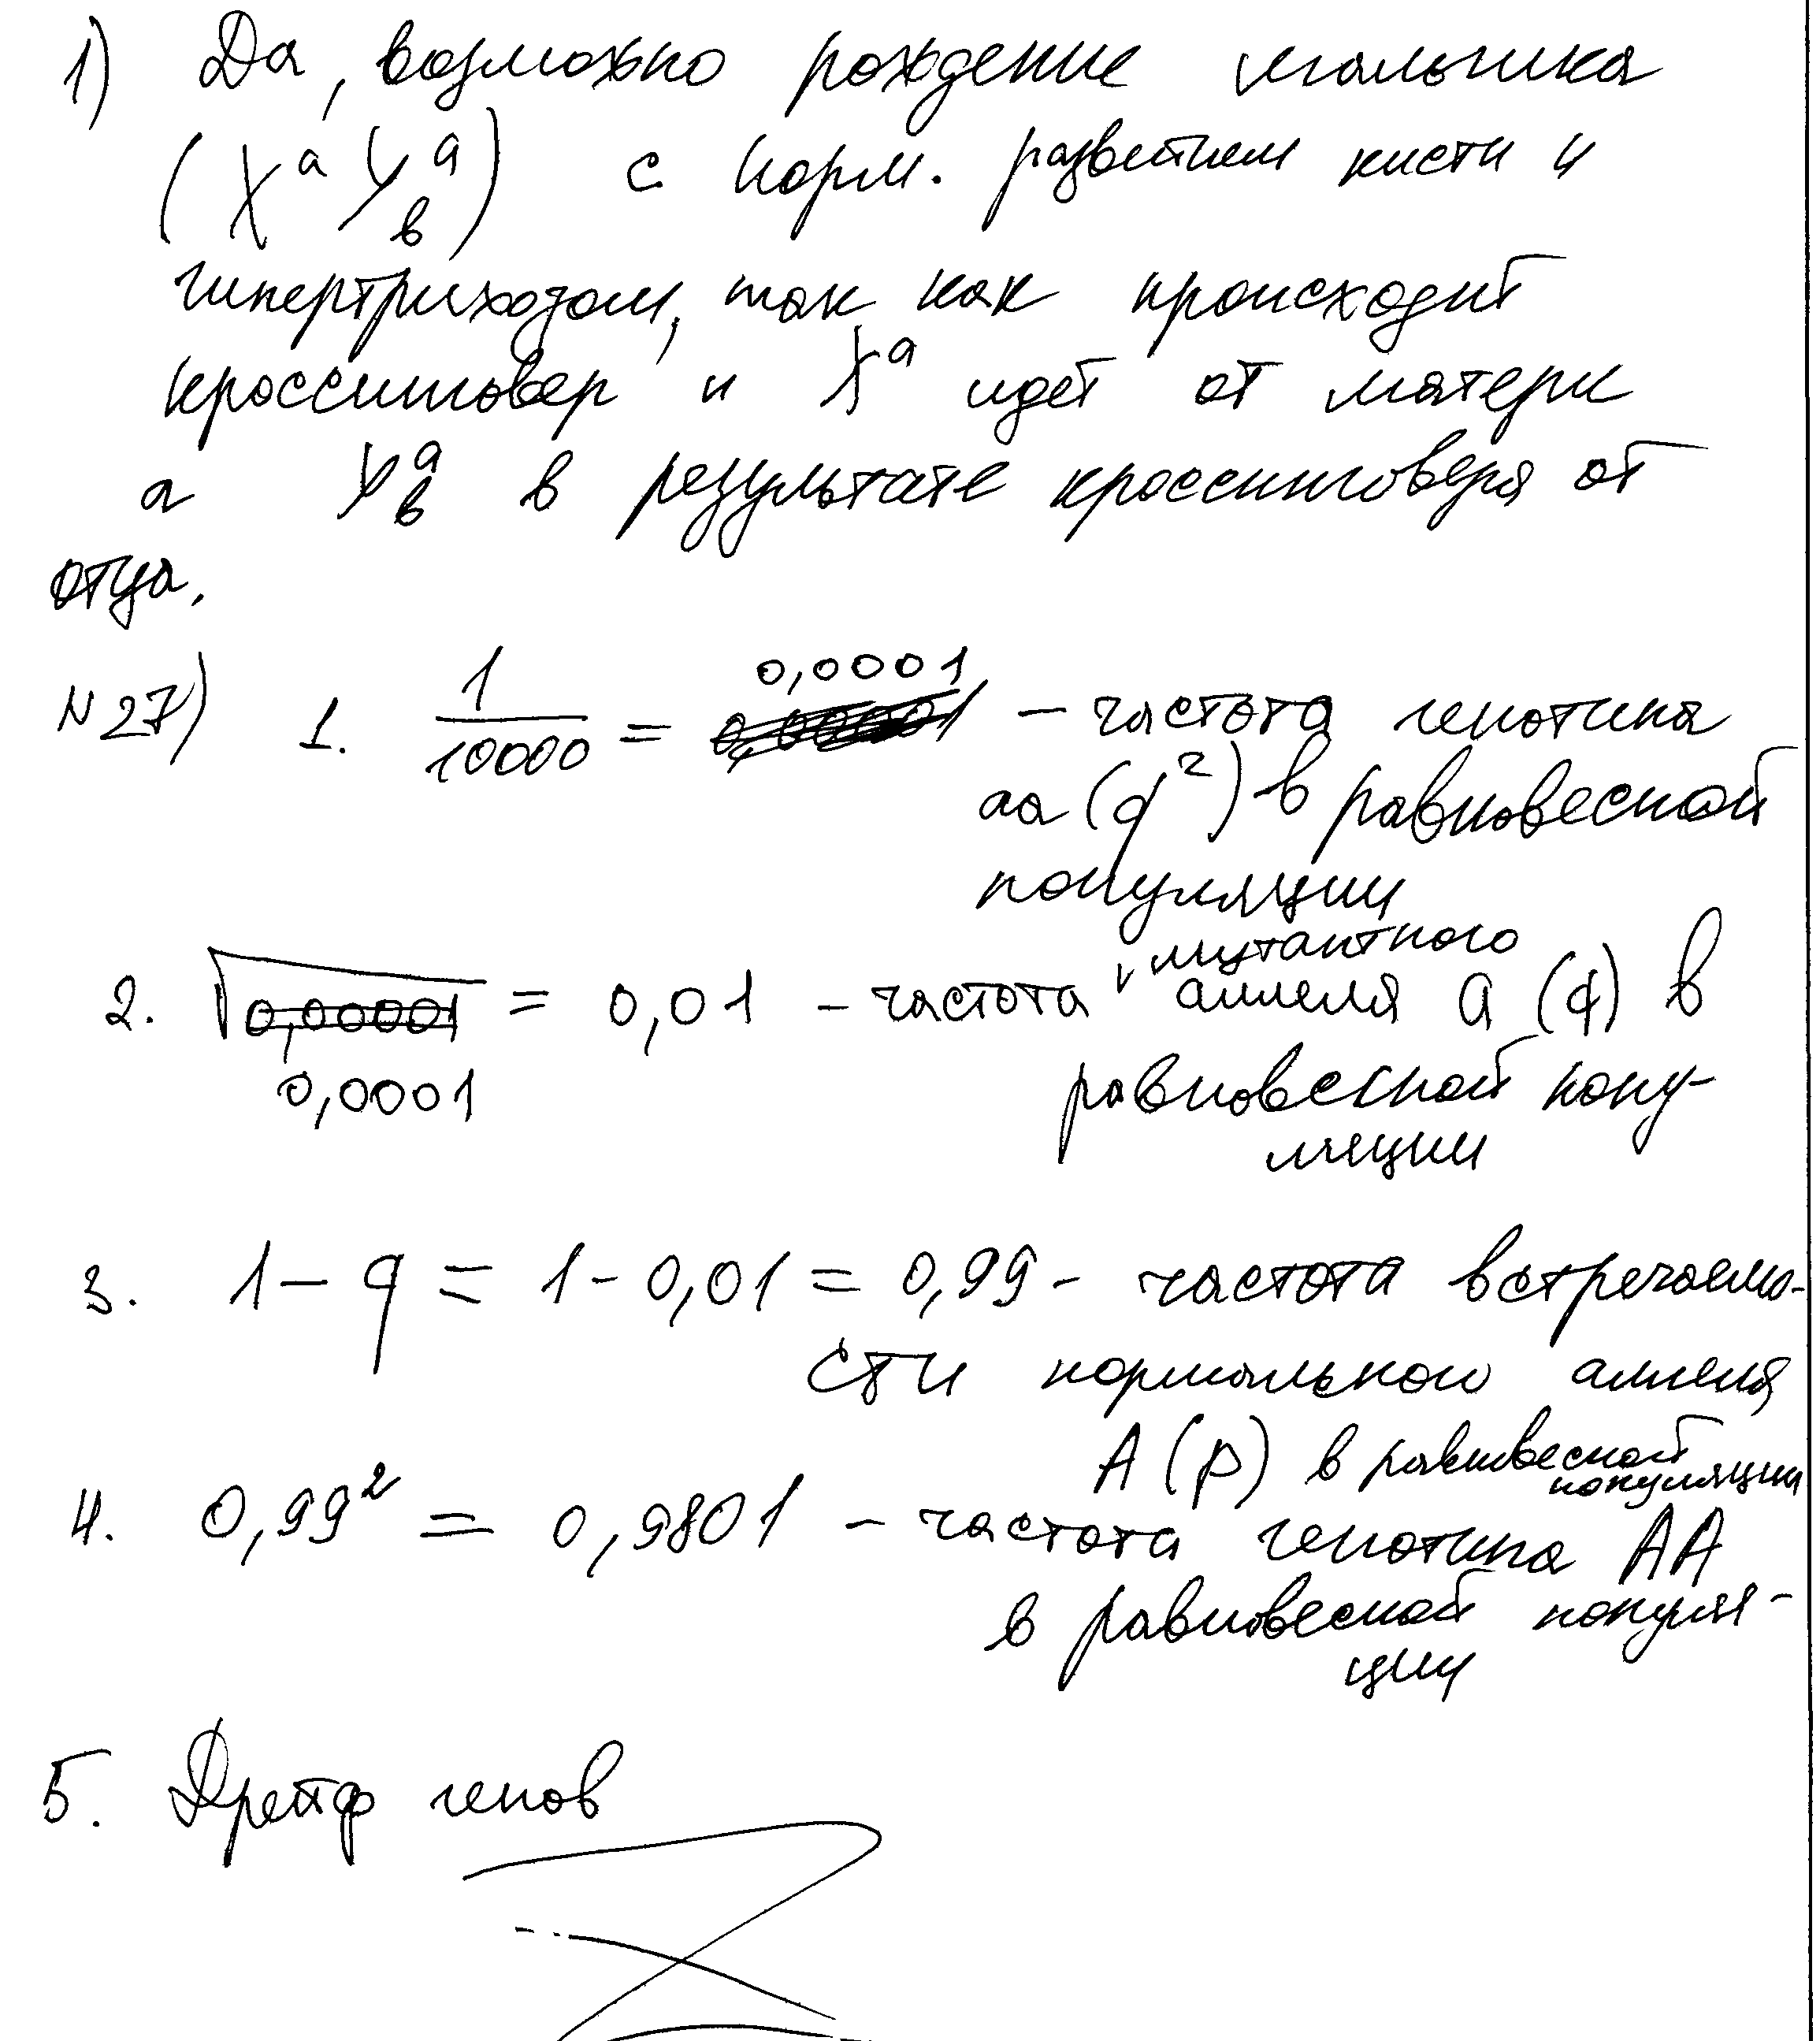 1) Да, возможно рождение мальчика
(Xᵃ Yᵃ_в) с норм. развитием кисти и
гипертрихозом, так как происходит
кроссинговер и Xᵃ идет от матери
а Yᵃ_в в результате кроссинговера от
отца.
N27) 1. 1/10000 = 0,0001 – частота генотипа
aa (q²) в равновесной
популяции
2. √0,0001 = 0,01 – частота мутантного аллеля a (q) в
равновесной попу-
ляции
3. 1 – q = 1 - 0,01 = 0,99 - частота встречаемо-
сти нормального аллеля
A (p) в равновесной популяции
4. 0,99² = 0,9801 – частота генотипа AA
в равновесной популя-
ции
5. Дрейф генов